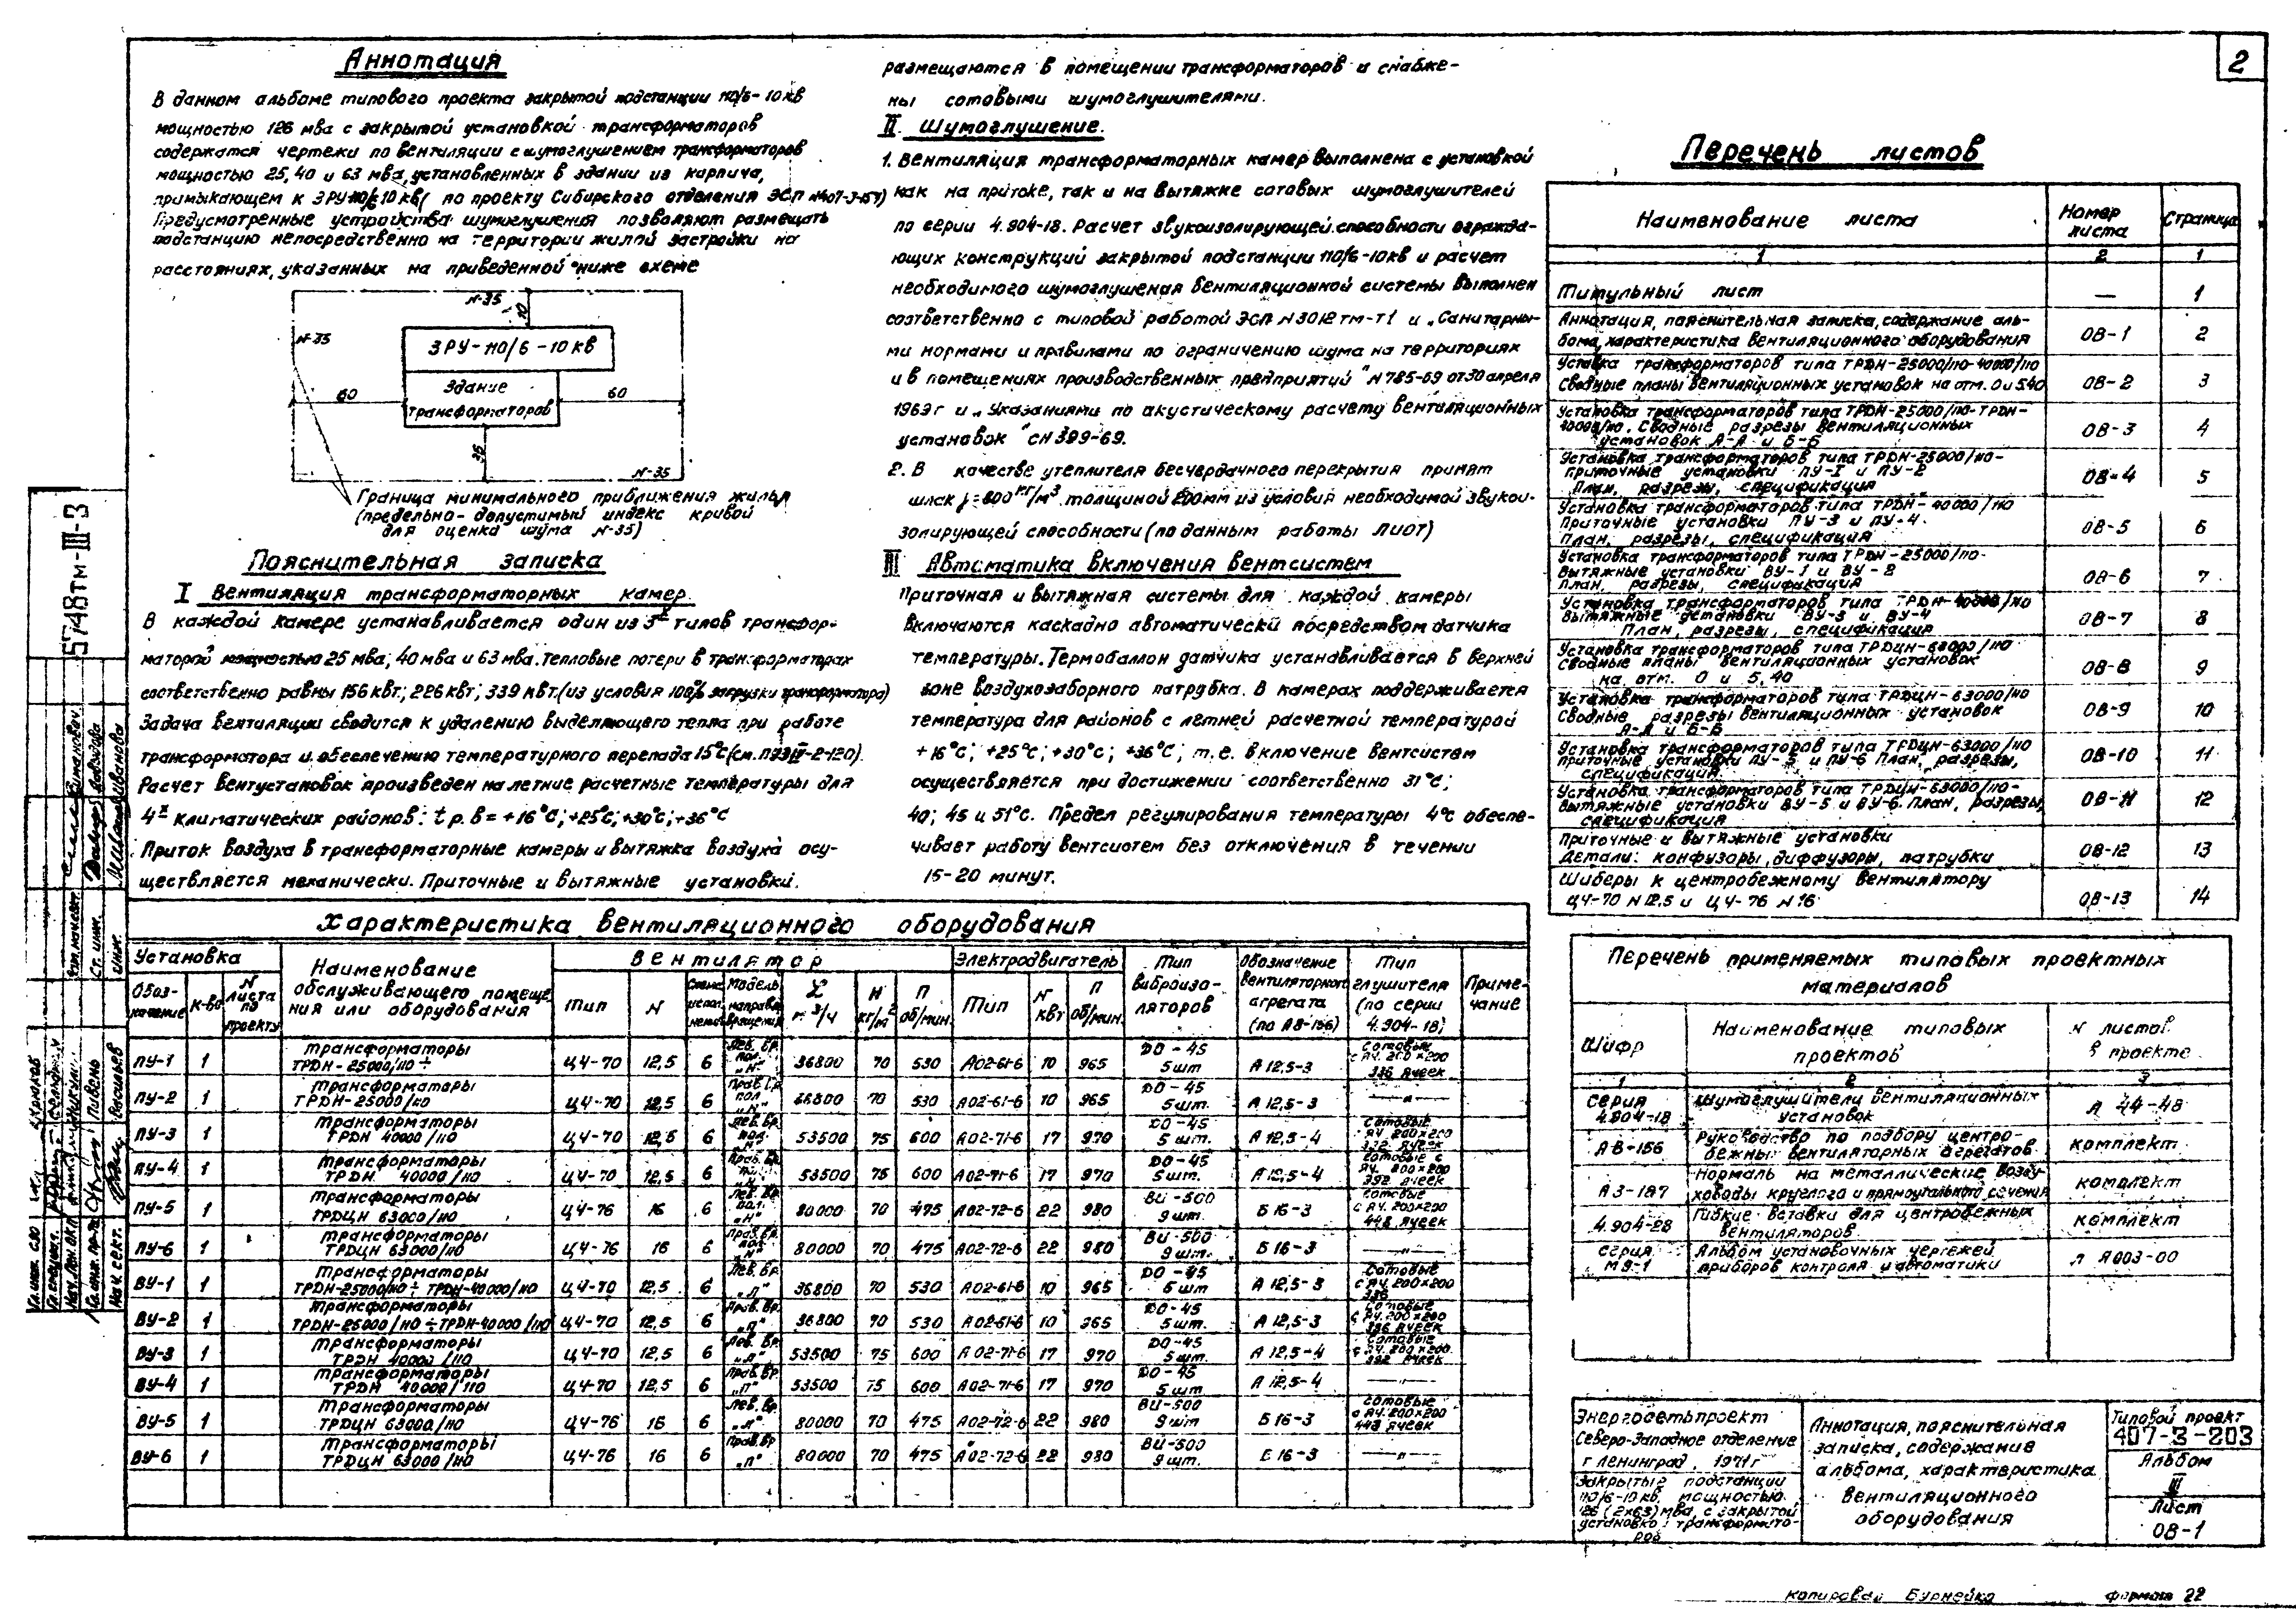 2
Аннотация
В данном альбоме типового проекта закрытой подстанции 110/6-10кв
мощностью 126 мва с закрытой установкой трансформаторов
содержатся чертежи по вентиляции с шумоглушением трансформаторов
мощностью 25, 40 и 63 мва, установленных в здании из кирпича,
примыкающем к ЗРУ-110/6-10кв (по проекту Сибирского отделения ЭСП
Предусмотренные устройства шумоглушения позволяют размещать
подстанцию непосредственно на территории жилой застройки на
расстояниях, указанных на приведенной ниже схеме
N-35
10
N-35
ЗРУ-110/6-10кв
Здание
трансформаторов
60
60
N-35
Граница минимального приближения жилья
(предельно-допустимый индекс кривой
для оценки шума N-35)
Пояснительная записка
I Вентиляция трансформаторных камер.
В каждой камере устанавливается один из 3х типов трансфор-
маторов мощностью 25 мва; 40 мва и 63 мва. Тепловые потери в трансформаторах
соответственно равны 156 квт; 226 квт; 339 квт. (из условия 100% загрузки трансформатора)
Задача вентиляции сводится к удалению выделяющего тепла при работе
трансформатора и обеспечению температурного перепада 15°С (см. ПУЭ III-2-120).
Расчет вентустановок произведен на летние расчетные температуры для
4х климатических районов: t р.в = +16°С; +25°С; +30°С; +36°С
Приток воздуха в трансформаторные камеры и вытяжка воздуха осу-
ществляется механически. Приточные и вытяжные установки.
размещаются в помещении трансформаторов и снабже-
ны сотовыми шумоглушителями.
II. Шумоглушение.
1. Вентиляция трансформаторных камер выполнена с установкой
как на притоке, так и на вытяжке сотовых шумоглушителей
по серии 4.904-18. Расчет звукоизолирующей способности огражда-
ющих конструкций закрытой подстанции 110/6-10кв и расчет
необходимого шумоглушения вентиляционной системы выполнен
соответственно с типовой работой ЭСП N3012тм-т1 и „Санитарны-
ми нормами и правилами по ограничению шума на территориях
и в помещениях производственных предприятий" N785-69 от 30 апреля
1969г и „Указаниями по акустическому расчету вентиляционных
установок" СН 399-69.
2. В качестве утеплителя бесчердачного перекрытия принят
шлак γ=800кг/м³ толщиной 200мм из условия необходимой звукои-
золирующей способности (по данным работы ЛИОТ)
III Автоматика включения вентсистем
Приточная и вытяжная системы для каждой камеры
включаются каскадно автоматически посредством датчика
температуры. Термобаллон датчика устанавливается в верхней
зоне воздухозаборного патрубка. В камерах поддерживается
температура для районов с летней расчетной температурой
+16°С; +25°С; +30°С; +36°С; т.е. включение вентсистем
осуществляется при достижении соответственно 31°С;
40; 45 и 51°С. Предел регулирования температуры 4°С обеспе-
чивает работу вентсистем без отключения в течении
15-20 минут.
Перечень листов
Наименование листа Номер листа Страница
1 2 1
Титульный лист — 1
Аннотация, пояснительная записка, содержание аль-
бома, характеристика вентиляционного оборудования ОВ-1 2
Уставка трансформаторов типа ТРДН-25000/110-40000/110
Сводные планы вентиляционных установок на отм. 0 и 5.40 ОВ-2 3
Установка трансформаторов типа ТРДН-25000/110-ТРДН-
40000/110. Сводные разрезы вентиляционных
установок А-А и Б-Б ОВ-3 4
Установка трансформаторов типа ТРДН-25000/110-
Приточные установки ПУ-1 и ПУ-2
План, разрезы, спецификация ОВ-4 5
Установка трансформаторов типа ТРДН-40000/110
Приточные установки ПУ-3 и ПУ-4.
План, разрезы, спецификация ОВ-5 6
Установка трансформаторов типа ТРДН-25000/110-
Вытяжные установки ВУ-1 и ВУ-2
План, разрезы, спецификация ОВ-6 7
Установка трансформаторов типа ТРДН-40000/110
Вытяжные установки ВУ-3 и ВУ-4
План, разрезы, спецификация ОВ-7 8
Установка трансформаторов типа ТРДЦН-63000/110
Сводные планы вентиляционных установок
на отм. 0 и 5.40 ОВ-8 9
Установка трансформаторов типа ТРДЦН-63000/110
Сводные разрезы вентиляционных установок
А-А и Б-Б ОВ-9 10
Установка трансформаторов типа ТРДЦН-63000/110
приточные установки ПУ-5 и ПУ-6 План, разрезы,
спецификация ОВ-10 11
Установка трансформаторов типа ТРДЦН-63000/110-
Вытяжные установки ВУ-5 и ВУ-6. План, разрезы,
спецификация ОВ-11 12
Приточные и вытяжные установки
Детали: конфузоры, диффузоры, патрубки ОВ-12 13
Шиберы к центробежному вентилятору
Ц4-70 N12,5 и Ц4-76 N16 ОВ-13 14
Характеристика вентиляционного оборудования
Установка Наименование обслуживающего помеще- ния или оборудования Вентилятор Электродвигатель Тип виброизо- ляторов Обозначение вентиляторного агрегата (по АВ-156) Тип глушителя (по серии 4.904-18) Приме- чание
Обоз- начение к-во N листа по проекту Тип N Схема испол- нения Модель направ. вращения м³/ч Н кг/м² П об/мин. Тип N квт П об/мин.
ПУ-1 1 Трансформаторы ТРДН-25000/110 ÷ Ц4-70 12,5 6 Лев. вр. пол. „Н" 36800 70 530 А02-61-6 10 965 ДО-45 5шт А12,5-3 Сотовые с яч. 200×200 336 ячеек
ПУ-2 1 Трансформаторы ТРДН-25000/110 Ц4-70 12,5 6 Прав. вр. пол „Н" 36800 70 530 А02-61-6 10 965 ДО-45 5шт. А12,5-3 —„—
ПУ-3 1 Трансформаторы ТРДН 40000/110 Ц4-70 12,5 6 Лев. вр. пол. „Н" 53500 75 600 А02-71-6 17 970 ДО-45 5шт. А12,5-4 Сотовые с яч 200×200 392 ячеек
ПУ-4 1 Трансформаторы ТРДН 40000/110 Ц4-70 12,5 6 Прав. вр. пол. „Н" 53500 75 600 А02-71-6 17 970 ДО-45 5шт. А12,5-4 Сотовые с яч. 200×200 392 ячеек
ПУ-5 1 Трансформаторы ТРДЦН 63000/110 Ц4-76 16 6 Лев. вр. пол. „Н" 80000 70 475 А02-72-6 22 980 ВИ-500 9шт. Б16-3 Сотовые с яч. 200×200 448 ячеек
ПУ-6 1 Трансформаторы ТРДЦН 63000/110 Ц4-76 16 6 Прав. вр. пол. „Н" 80000 70 475 А02-72-6 22 980 ВИ-500 9шт. Б16-3 —„—
ВУ-1 1 Трансформаторы ТРДН-25000/110 ÷ ТРДН-40000/110 Ц4-70 12,5 6 Лев. вр. „Л" 36800 70 530 А02-61-6 10 965 ДО-45 5шт А12,5-3 Сотовые с яч. 200×200 336
ВУ-2 1 Трансформаторы ТРДН-25000/110 ÷ ТРДН-40000/110 Ц4-70 12,5 6 Прав. вр. „П" 36800 70 530 А02-61-6 10 965 ДО-45 5шт. А12,5-3 Сотовые с яч. 200×200 336 ячеек
ВУ-3 1 Трансформаторы ТРДН 40000/110 Ц4-70 12,5 6 Лев. вр. „Л" 53500 75 600 А02-71-6 17 970 ДО-45 5шт. А12,5-4 Сотовые с яч. 200×200 392 ячеек
ВУ-4 1 Трансформаторы ТРДН 40000/110 Ц4-70 12,5 6 Прав. вр. „П" 53500 75 600 А02-71-6 17 970 ДО-45 5шт А12,5-4 —„—
ВУ-5 1 Трансформаторы ТРДЦН 63000/110 Ц4-76 16 6 Лев. вр. „Л" 80000 70 475 А02-72-6 22 980 ВИ-500 9шт Б16-3 Сотовые с яч. 200×200 448 ячеек
ВУ-6 1 Трансформаторы ТРДЦН 63000/110 Ц4-76 16 6 Прав. вр „П" 80000 70 475 А02-72-6 22 980 ВИ-500 9шт. Б16-3 —„—
Перечень применяемых типовых проектных
материалов
Шифр Наименование типовых проектов N листов в проекте
1 2 3
Серия 4.904-18 Шумоглушители вентиляционных установок А 44-48
АВ-156 Руководство по подбору центро- бежных вентиляторных агрегатов комплект
А3-187 Нормаль на металлические возду- ховоды круглого и прямоугольного сечения комплект
4.904-28 Гибкие вставки для центробежных вентиляторов комплект
серия Альбом установочных чертежей приборов контроля и автоматики
Энергосетьпроект
Северо-Западное отделение
г Ленинград. 1971г
Закрытые подстанции
110/6-10кв, мощностью
126 (2×63) мва, с закрытой
установкой трансформато-
ров
Аннотация, пояснительная
записка, содержание
альбома, характеристика
вентиляционного
оборудования
Типовой проект
407-3-203
Альбом
III
Лист
ОВ-1
5748тм-III-3
Копировал Бурнейко формат 22